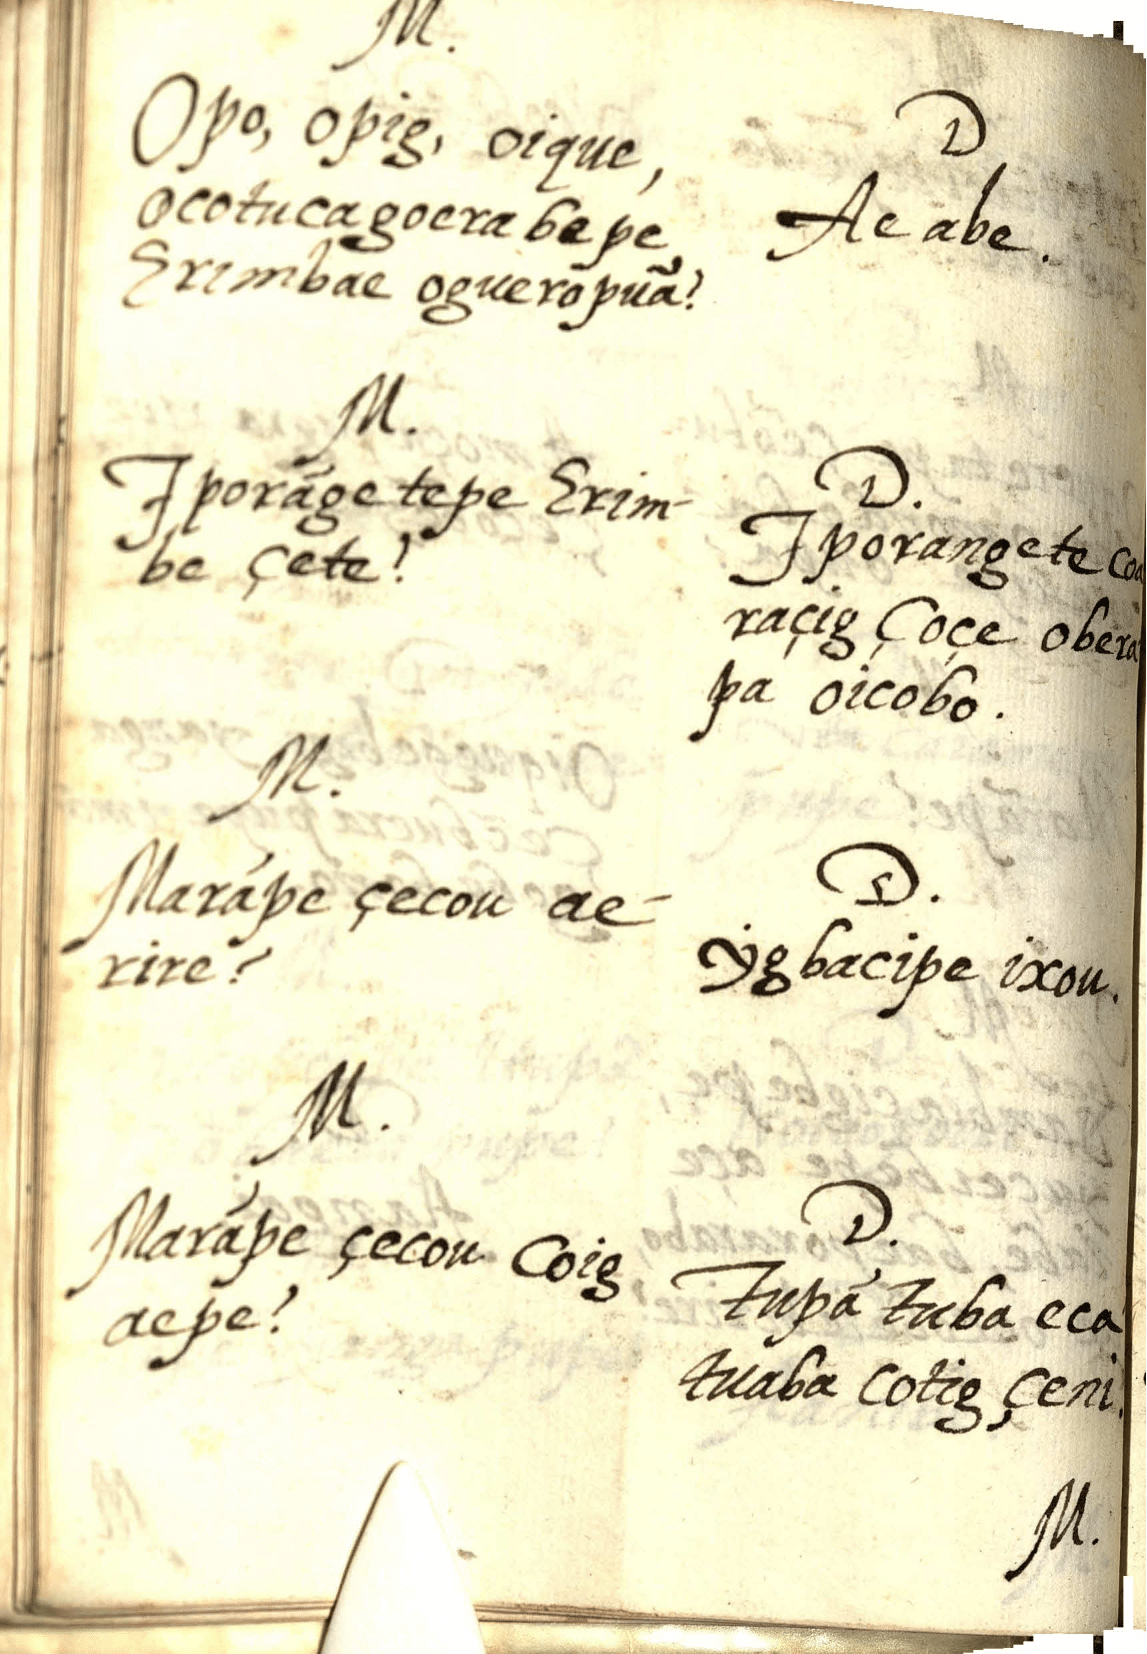 M.
Opo, opig, oique,
ocotucagoera bepe
Erimbae ogueropuã?
D
Ae abe.
M.
Jporãgetepe Erim-
be çete?
D.
Jporangete coa
raçig çoçe obera
pa oicobo.
M.
Marãpe çecou ae-
rire?
D.
ẏgbacipe ixou.
M.
Marãpe çecou coig
aepe?
D.
Tupã tuba eca
tuaba cotig çeni.
M.